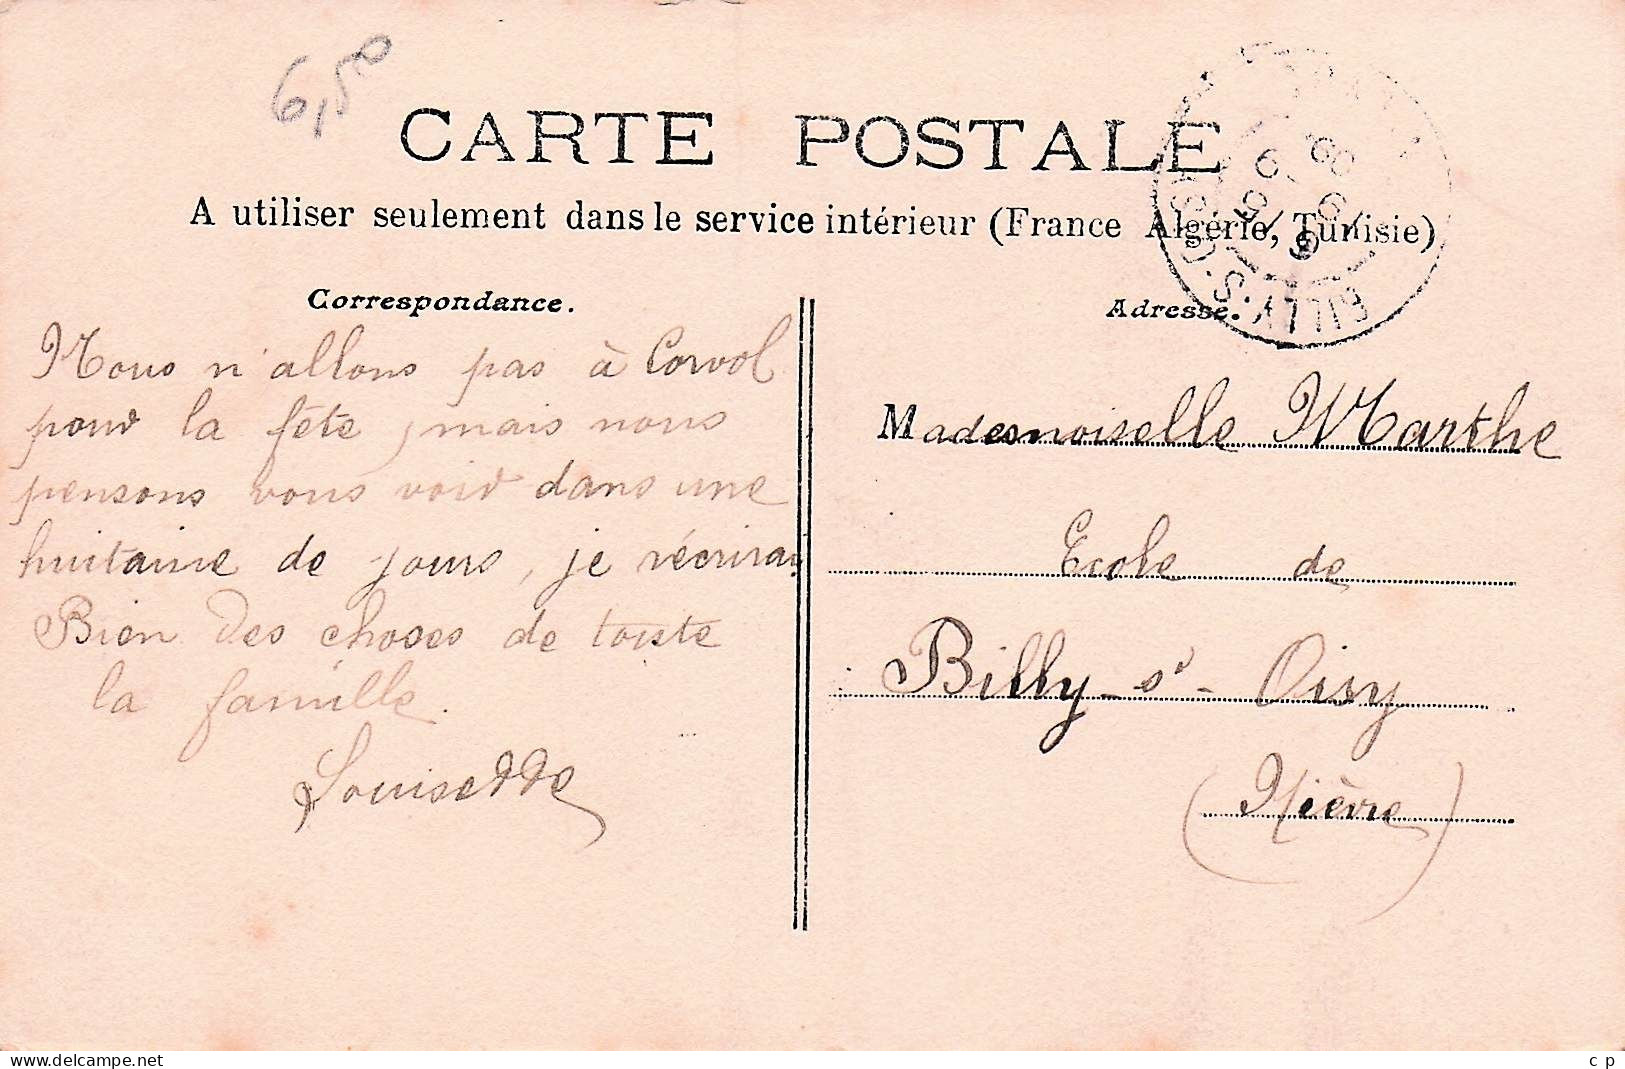 6,50
CARTE POSTALE
A utiliser seulement dans le service intérieur (France Algérie, Tunisie)
Correspondance.
Nous n'allons pas à Corvol
pour la fête, mais nous
pensons vous voir dans une
huitaine de jours, je récrirai
Bien des choses de toute
la famille.
Louisette
Adresse.
BILLY-S-OISY
Mademoiselle Marthe
Ecole de
Billy-sr-Oisy
(Nièvre)
www.delcampe.net
c p